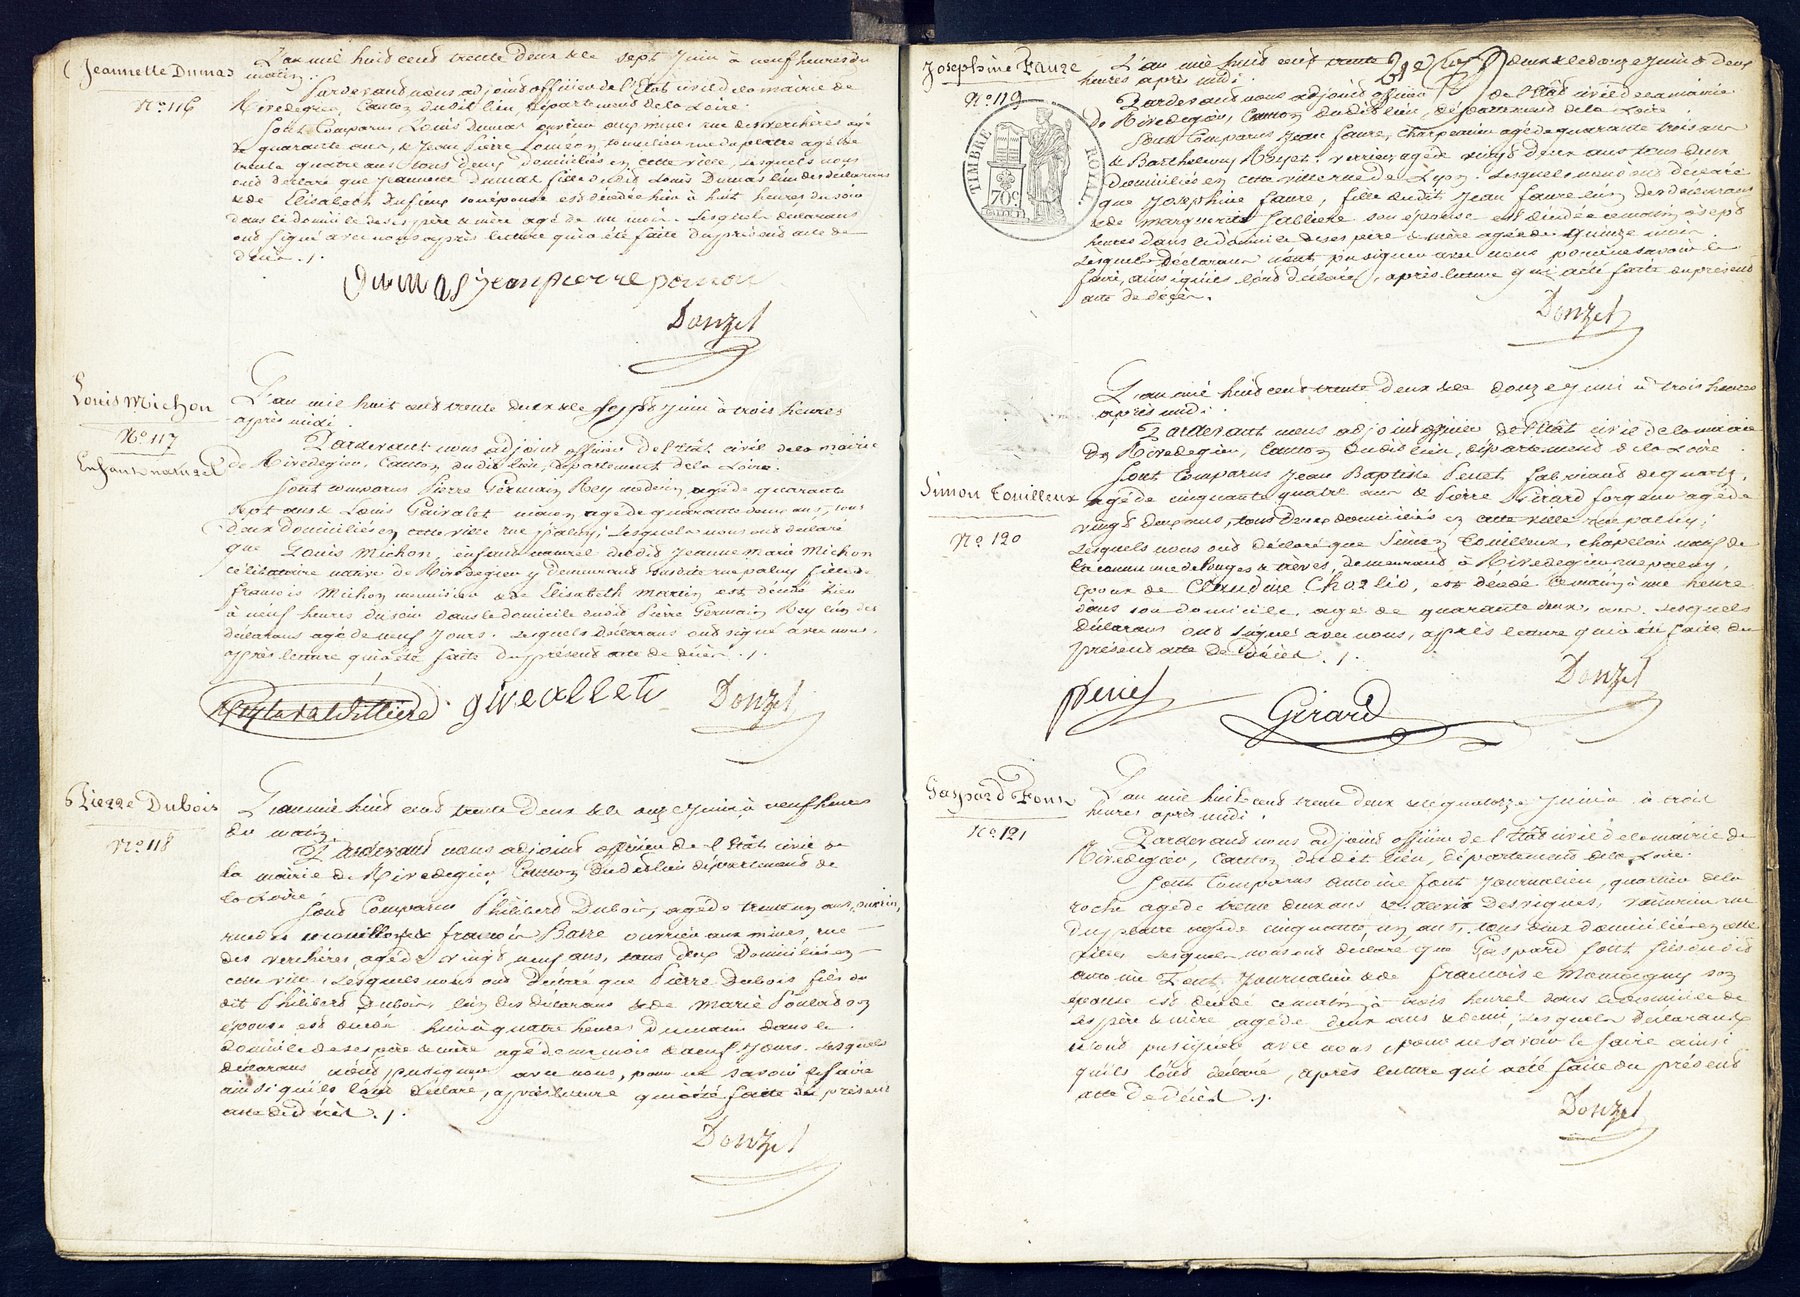 Jeannette Dumas
N.º 116
L'an mil huit cent trente deux & le sept Juin à neuf heures du
matin.
Pardevant nous adjoint officier de l'Etat civil de la mairie de
Rivedegier, Canton dudit lieu, département de la Loire.
Sont Comparus Louis Dumas ouvrier aux mines rue des verchères agé
de quarante ans, & Jean Pierre rue du platre agé de
trente quatre ans tous deux domiciliés en cette ville, Lesquels nous
ont déclaré que Jeannette Dumas fille dudit Louis Dumas l'un des déclarans
& de Elisabeth son épouse est décédée hier à huit heures du soir
dans le domicile de ses père & mère agé de un mois. Lesquels déclarans
ont signé avec nous après lecture qui a été faite du présent acte de
décès ./.
Dumas Jean pierre
Donzel
Louis Michon
N.º 117
Enfant naturel
L'an mil huit cent trente deux & le sept Juin à trois heures
après midi.
Pardevant nous adjoint officier de l'Etat civil de la mairie
de Rivedegier, Canton dudit lieu, département de la Loire.
Sont comparus Pierre Germain Rey medecin agé de quarante
sept ans & Louis agé de quarante ans, tous
deux domiciliés en cette ville rue paluy; Lesquels nous ont déclaré
que Louis Michon, enfant naturel dudit Jeanne Marie Michon
célibataire native de Rivedegier y demeurant susdite rue paluy fille de
francois Michon menuisier & de Elisabeth Martin est décédé hier
à neuf heures du soir dans le domicile dudit Pierre Germain Rey l'un des
déclarans agé de neuf Jours. Lesquels Déclarans ont signé avec nous,
après lecture qui a été faite du présent acte de décès ./.
giveallet
Donzel
Pierre Dubois
N.º 118
L'an mil huit cent trente deux & le onze Juin à neuf heures
du matin.
Pardevant nous adjoint officier de l'Etat civil de
la mairie de Rivedegier, Canton dudit lieu département de
la Loire.
Sont Comparus Philibert Dubois, agé de trente un ans,
rue & francois Barre ouvrier aux mines, rue
des verchères agé de vingt neuf ans, tous deux Domiciliés en
cette ville. Lesquels nous ont déclaré que Pierre Dubois fils du
dit Philibert Dubois, l'un des déclarans & de Marie son
épouse est décédé hier à quatre heures du matin dans le
domicile de ses père & mère agé de un mois & neuf Jours. Lesquels
déclarans n'ont pu signer avec nous, pour ne savoir le faire
ainsi qu'ils l'ont déclaré, après lecture qui a été faite du présent
acte de décès ./.
Donzel
Josephine Faure
N.º 119
TIMBRE ROYAL.
70c
L'an mil huit cent trente deux & le douze Juin à deux
heures après midi.
Pardevant nous adjoint officier de l'Etat civil de la mairie
de Rivedegier, Canton dudit lieu, département de la Loire
Sont Comparus Jean faure, Charpentier agé de quarante trois ans
& Barthelemy Royet verrier agé de vingt deux ans tous deux
domiciliés en cette ville rue de Lyon. Lesquels nous ont déclaré
que Josephine faure, fille dudit Jean faure l'un des déclarans
& de Marguerite Sabliere son épouse est décédée ce matin à sept
heures dans le domicile de ses père & mère agée de quinze mois.
Lesquels Déclarans n'ont pu signer avec nous pour ne savoir le
faire, ainsi qu'ils l'ont déclaré, après lecture qui a été faite du présent
acte de décès.
Donzel
Simon Touilleux
N.º 120
L'an mil huit cent trente deux & le douze Juin à trois heures
après midi.
Pardevant nous adjoint officier de l'Etat civil de la mairie
de Rivedegier, Canton dudit lieu, département de la Loire.
Sont comparus Jean Baptiste Penet fabricant
agé de cinquante quatre ans & Pierre Girard forgeur agé de
vingt deux ans, tous deux domiciliés en cette ville rue paluy;
Lesquels nous ont déclaré que Simon Touilleux, chapelier natif de
la commune de longes & trèves, demeurant à Rivedegier rue paluy,
époux de Claudine Chorlio, est décédé ce matin à une heure
dans son domicile, agé de quarante deux ans. Lesquels
Déclarans ont signé avec nous, après lecture qui a été faite du
présent acte de Décès ./.
Donzel
Girard
Gaspard Font
N.º 121
L'an mil huit cent trente deux & le quatorze Juin à trois
heures après midi.
Pardevant nous adjoint officier de l'Etat civil de la mairie de
Rivedegier, Canton dudit lieu, département de la Loire.
Sont Comparus Antoine Font Journalier, quartier de la
roche agé de trente deux ans & rue
du platre agé de cinquante un ans, tous deux domiciliés en cette
ville. Lesquels nous ont déclaré que Gaspard Font fils dudit
antoine Font Journalier & de francoise son
épouse est décédé ce matin à trois heures dans le domicile de
ses père & mère agé de deux ans & demi, Lesquels Déclarans
n'ont pu signer avec nous, pour ne savoir le faire ainsi
qu'ils l'ont déclaré, après lecture qui a été faite du présent
acte de décès ./.
Donzel